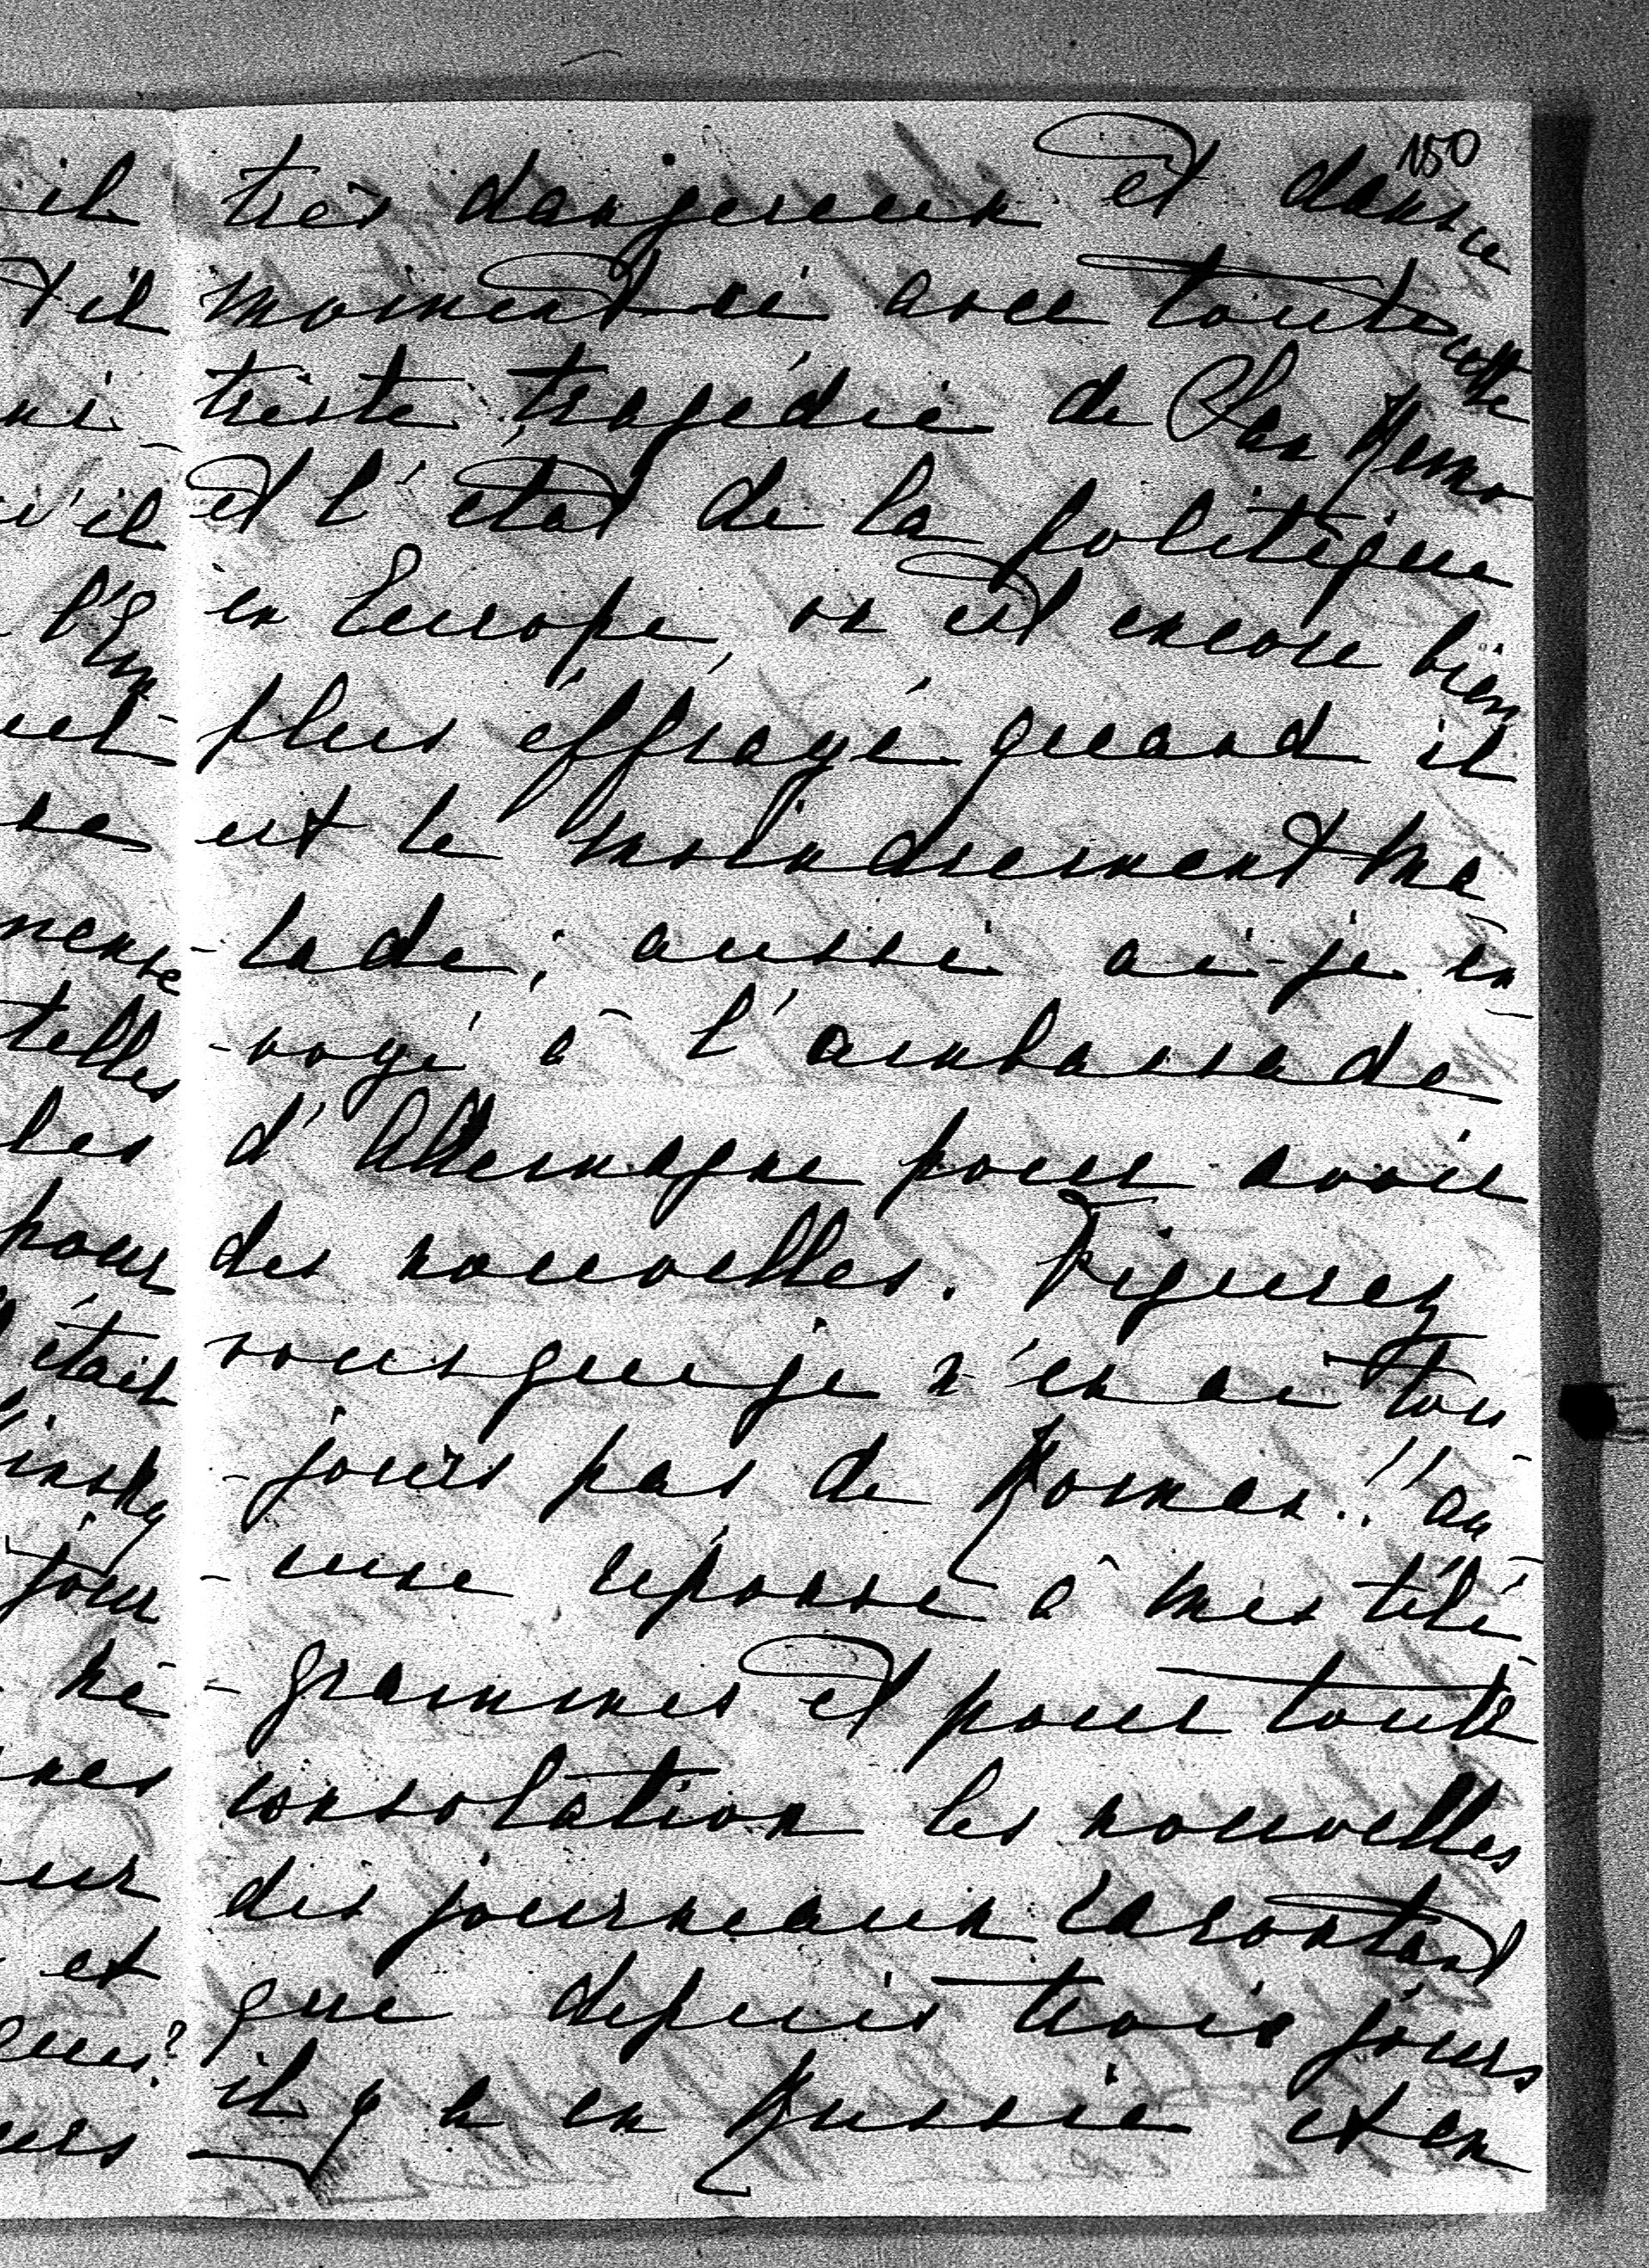 150
très dangereux et dans ce
moment-ci avec toute cette
triste tragédie de San Remo
et l'état de la politique
en Europe, on est encore bien
plus éffrayé quand il
est le moindrement ma
-lade; aussi ai-je en
-voyé à l'ambassade
d'Allemagne pour avoir
des nouvelles. Figurez
vous que je n'en ai tou
-jours pas de Roman!! au
-cune réponse à mes télé
-grammes et pour toute
consolation les nouvelles
des journeaux racontant
que depuis trois jours
il y a en Russie et en
il
t il
ni-
u'il
l'Em
uel-
se
mense
telles
les
pour
était
insky
jour
né-
nes
eur
et
ques?
eurs